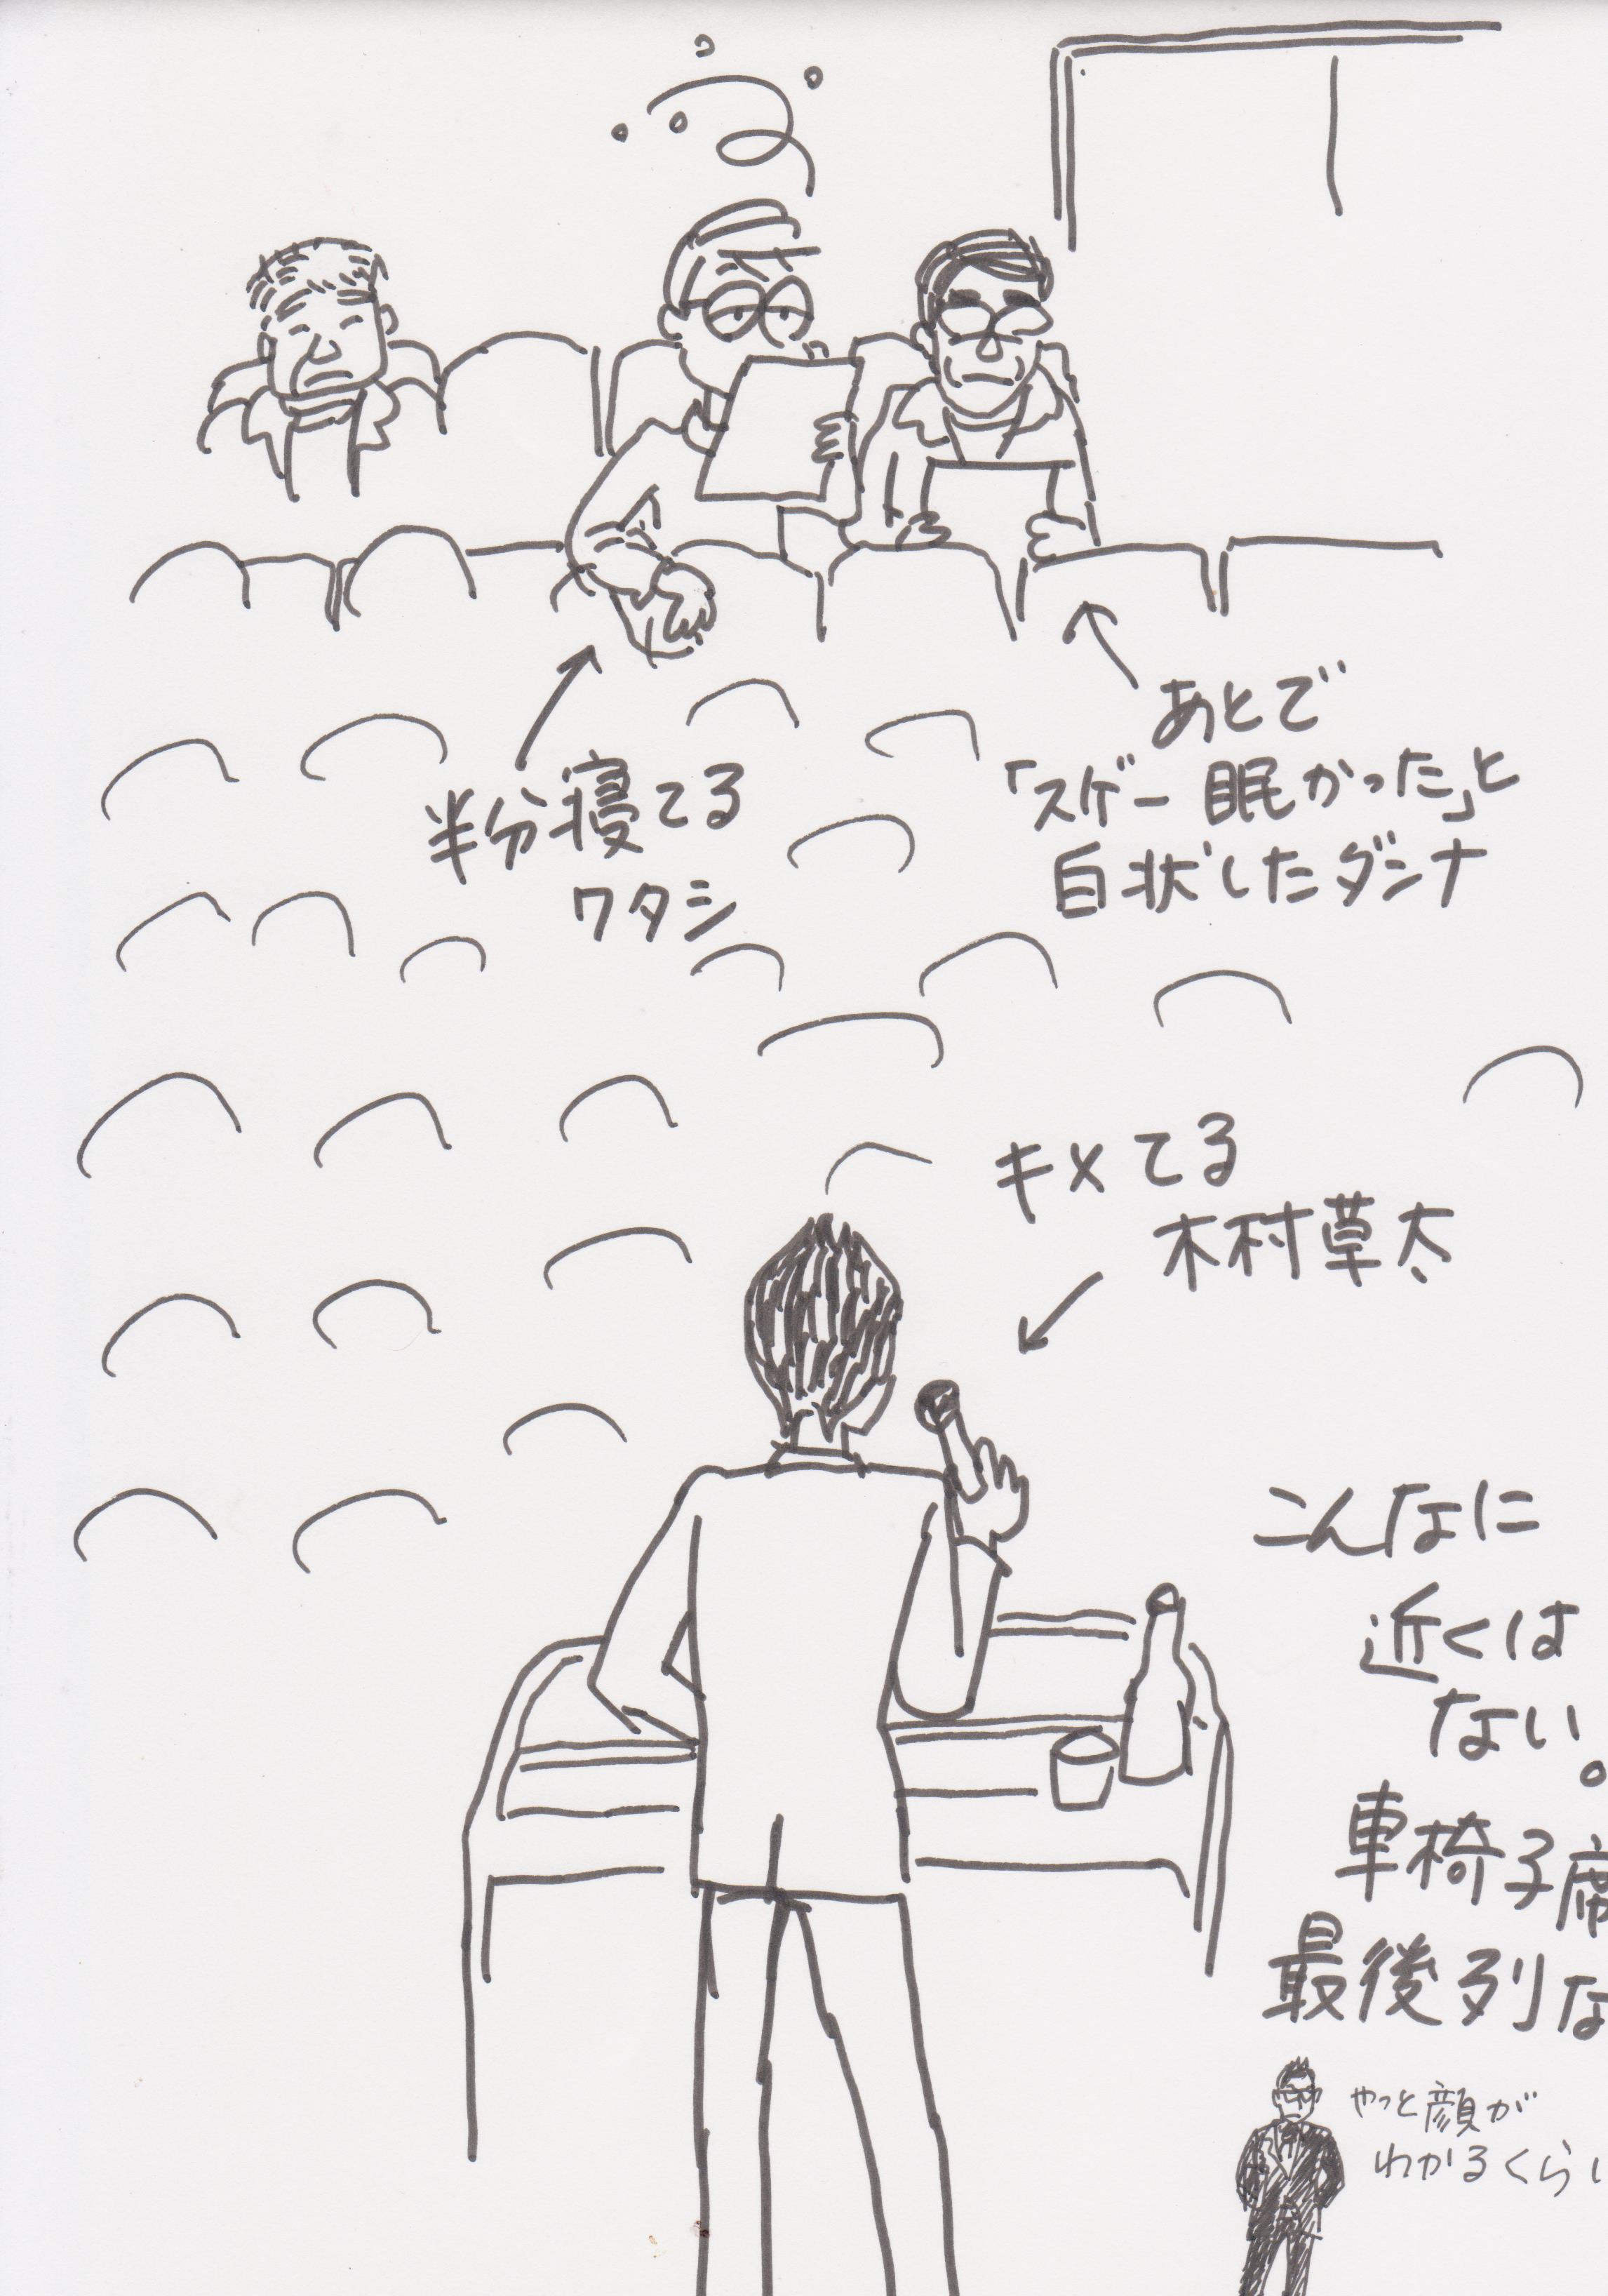 半分寝てる
ワタシ
あとで
「スゲー眠かった」と
白状したダンナ
キメてる
木村草太
こんなに
近くは
ない。
車椅子席
最後列な
やっと顔が
わかるくらい